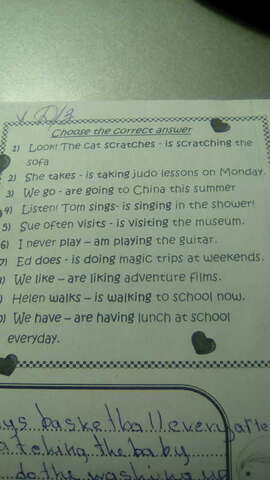 Choose the correct answer
1) Look! The cat scratches - is scratching the
sofa
2) She takes - is taking judo lessons on Monday.
3) We go - are going to China this summer
4) Listen! Tom sings- is singing in the shower!
5) Sue often visits - is visiting the museum.
6) I never play – am playing the guitar.
7) Ed does - is doing magic trips at weekends.
) We like – are liking adventure films.
) Helen walks – is walking to school now.
) We have – are having lunch at school
everyday.
ys basketball every
the baby
do the washing up